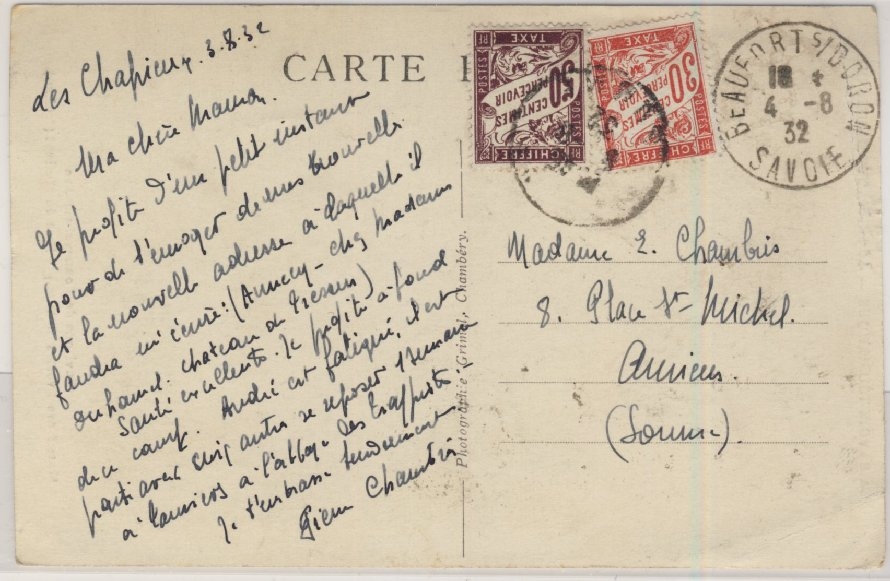 CARTE
Les Chapieux, 3.8.32
Ma chère Maman.
Je profite d'un petit instant
pour de t'envoyer de mes nouvelles
et la nouvelle adresse à laquelle il
faudra m'écrire : (Annecy - chez Madame
Duhamel. chateau de Tresun)
Santé excellente. Je profite à fond
de ce camp. André est fatigué, il est
parti avec cinq autres se reposer 1 semaine
à l'abbaye des trappistes
Je t'embrasse tendrement
Pierre Chambris
Photographie Grimal, Chambéry.
POSTES
RF
TAXE
50
CENTIMES
À PERCEVOIR
CHIFFRE
POSTES
RF
TAXE
30
CENTIMES
À PERCEVOIR
CHIFFRE
BEAUFORT S/DORON
18 *
4 -8
32
SAVOIE
Madame E. Chambris
8. Place St-Michel.
Amiens.
(Somme).